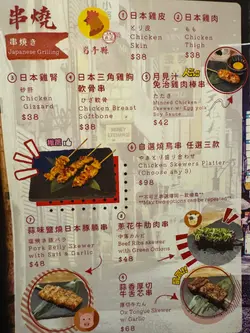 串燒
串焼き
Japanese Grilling
鳥手羽
① 日本雞皮
とり皮
Chicken
Skin
$38
② 日本雞肉
もも
Chicken
Thigh
$38
③ 日本雞腎
砂肝
Chicken
Gizzard
$38
④ 日本三角雞胸
軟骨串
ひざ軟骨
Chicken Breast
Softbone
$38
⑤ 月見汁
免治雞肉棒串
たたき
Minced Chicken
Skewer w/ Egg yolk
Soy Sauce
$42
推薦
⑥ 自選燒鳥串 任選三款
Chicken Skewers Platter
(Choose any 3)
$98
⑦ 蒜味鹽燒日本豚腩串
Pork Belly Skewer
with Salt & Garlic
$48
⑧ 蔥花牛肋肉串
Beef Ribs Skewer
with Green Onion
$68
⑨ 蒜香厚切
牛舌芯串
厚切牛たん
Ox Tongue Skewer
w/ Garlic
$68